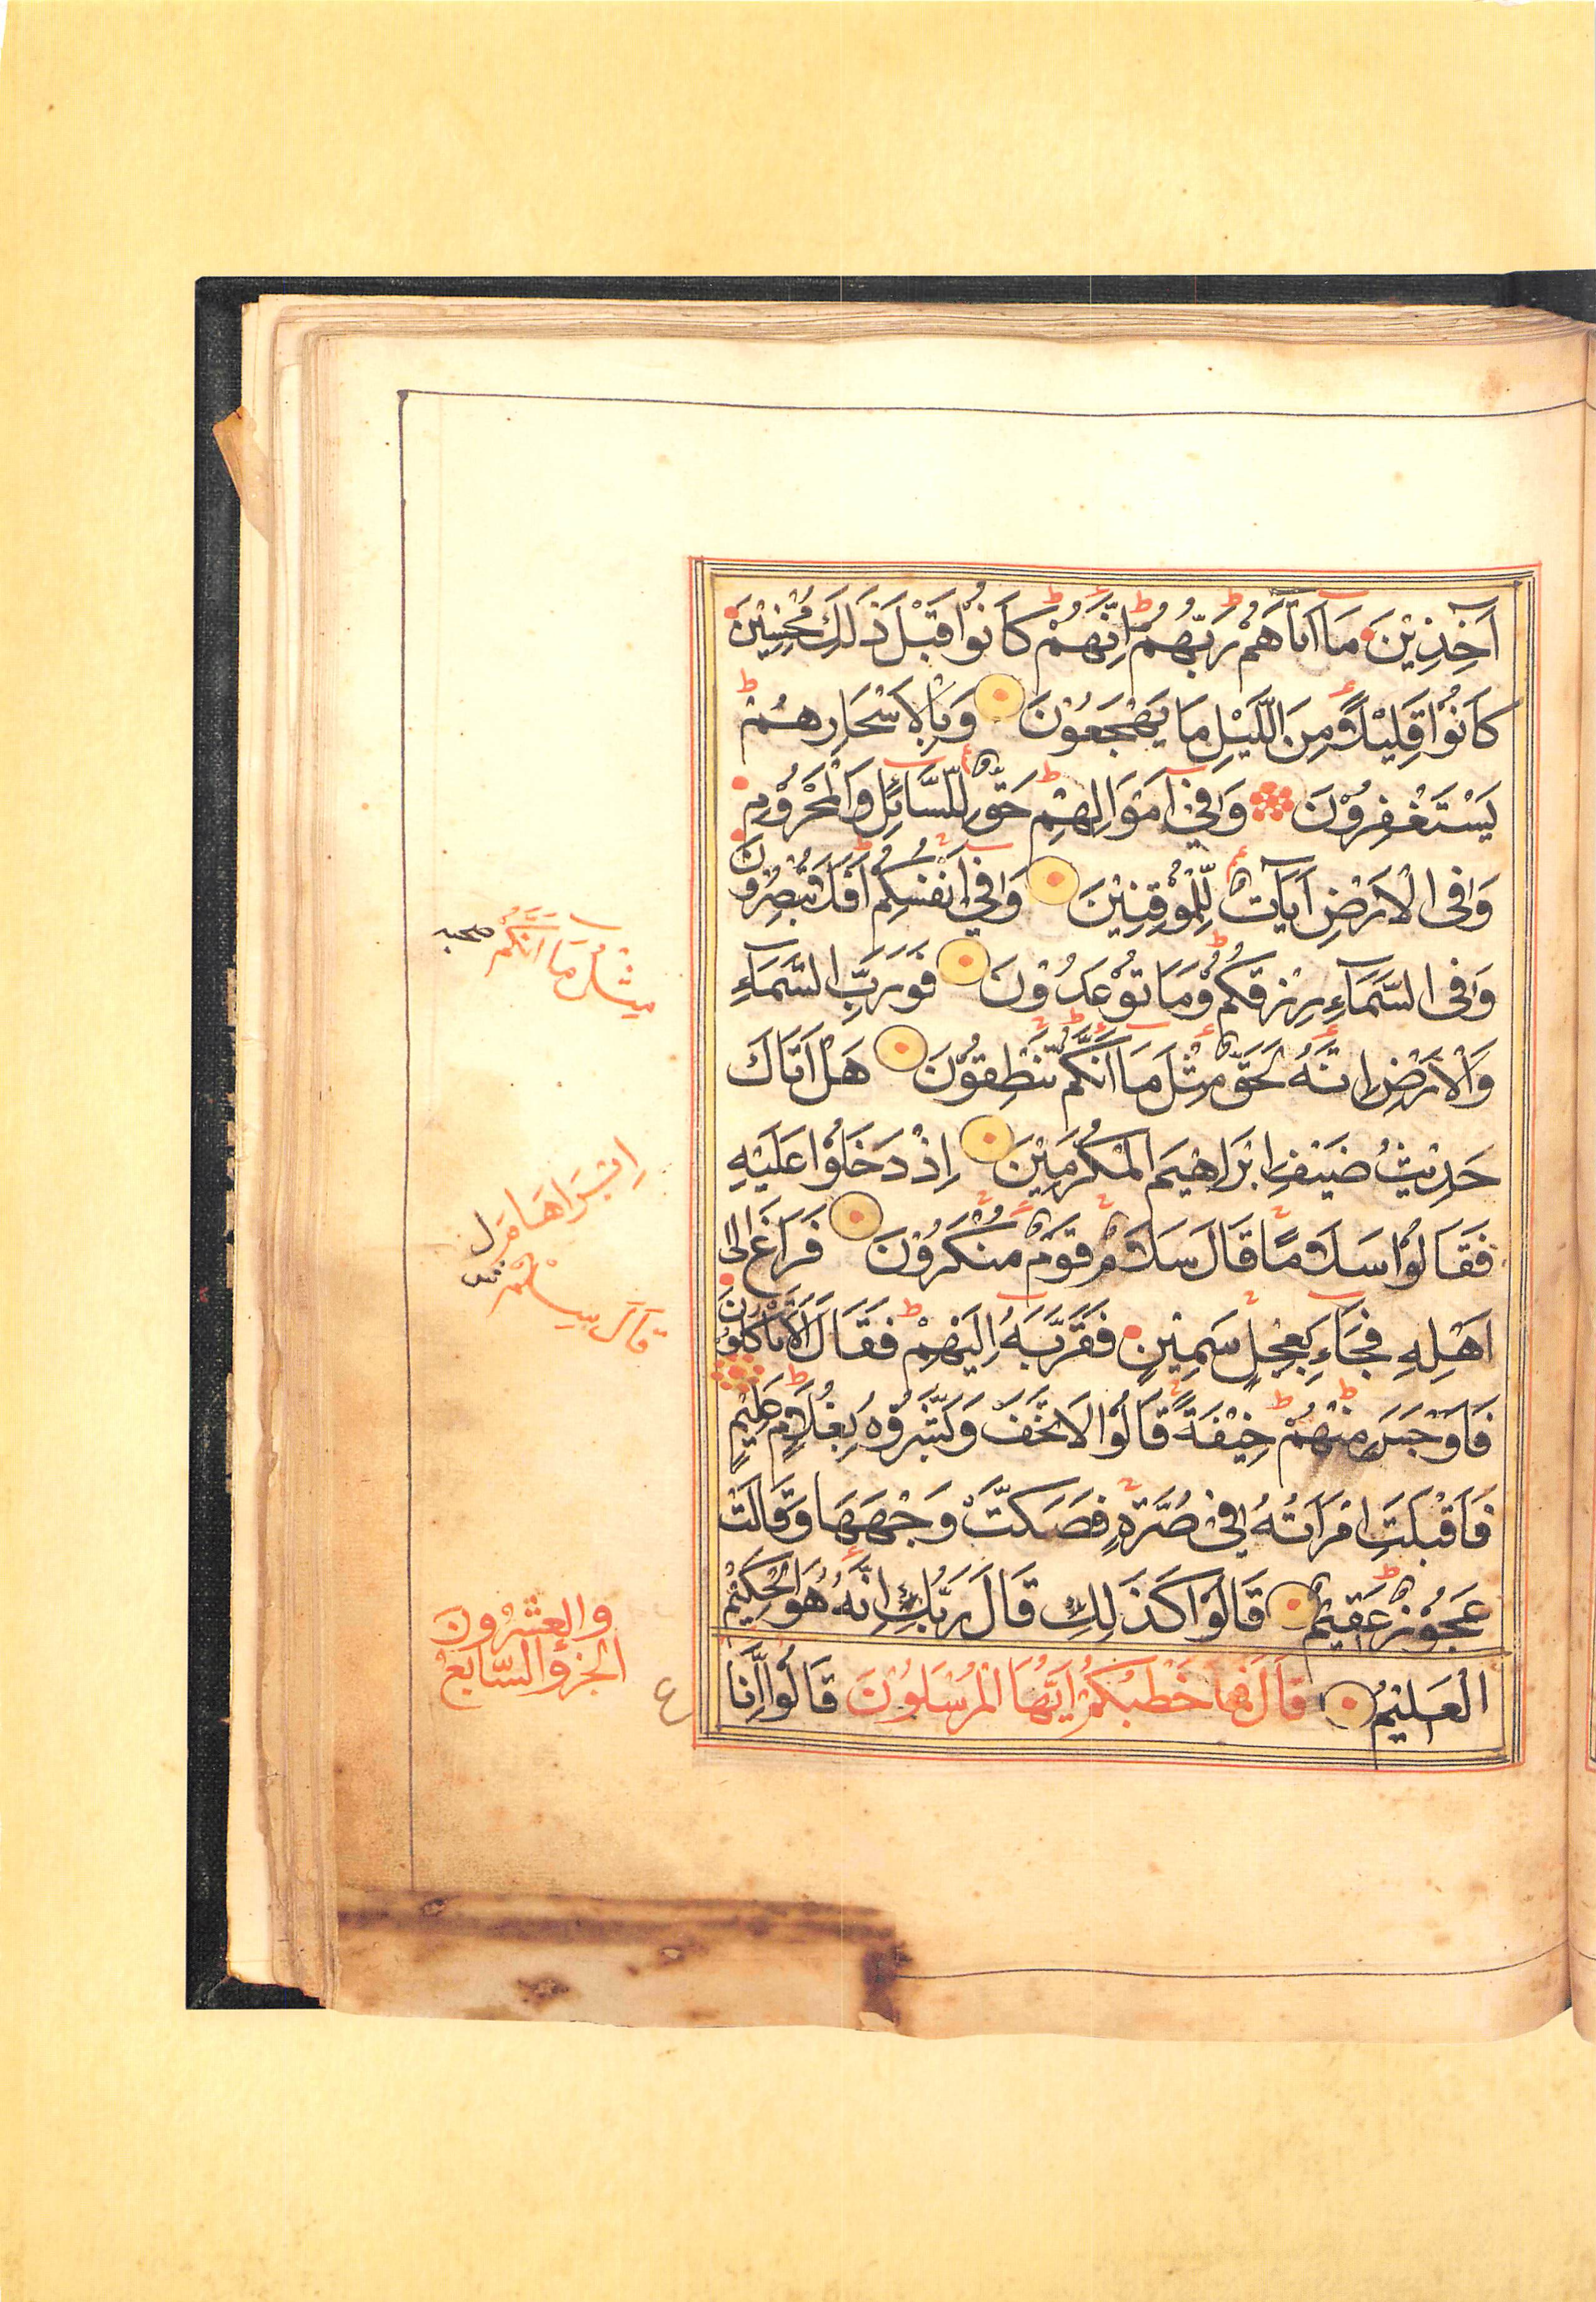 آخِذِيْنَ مَا اٰتَاهُمْ رَبُّهُمْ اِنَّهُمْ كَانُوْا قَبْلَ ذَلِكَ مُحْسِنِيْنَ
كَانُوْا قَلِيْلًا مِنَ اللَّيْلِ مَا يَهْجَعُوْنَ وَبِالْاَسْحَارِ هُمْ
يَسْتَغْفِرُوْنَ وَفِيْ اَمْوَالِهِمْ حَقٌّ لِلسَّائِلِ وَالْمَحْرُوْمِ
وَفِى الْاَرْضِ اٰيَاتٌ لِّلْمُوْقِنِيْنَ وَفِيْ اَنْفُسِكُمْ اَفَلَا تُبْصِرُوْنَ
وَفِى السَّمَآءِ رِزْقُكُمْ وَمَا تُوْعَدُوْنَ فَوَرَبِّ السَّمَآءِ
وَالْاَرْضِ اِنَّهُ لَحَقٌّ مِثْلَ مَا اَنَّكُمْ تَنْطِقُوْنَ هَلْ اَتَاكَ
حَدِيْثُ ضَيْفِ اِبْرَاهِيْمَ الْمُكْرَمِيْنَ اِذْ دَخَلُوْا عَلَيْهِ
فَقَالُوْا سَلَامًا قَالَ سَلَامٌ قَوْمٌ مُنْكَرُوْنَ فَرَاغَ اِلٰى
اَهْلِهِ فَجَاءَ بِعِجْلٍ سَمِيْنٍ فَقَرَّبَهُ اِلَيْهِمْ فَقَالَ اَلَا تَاْكُلُوْنَ
فَاَوْجَسَ مِنْهُمْ خِيْفَةً قَالُوْا لَا تَخَفْ وَبَشَّرُوْهُ بِغُلَامٍ عَلِيْمٍ
فَاَقْبَلَتِ امْرَاَتُهُ فِيْ صَرَّةٍ فَصَكَّتْ وَجْهَهَا وَقَالَتْ
عَجُوْزٌ عَقِيْمٌ قَالُوْا كَذَلِكِ قَالَ رَبُّكِ اِنَّهُ هُوَ الْحَكِيْمُ
الْعَلِيْمُ قَالَ فَمَا خَطْبُكُمْ اَيُّهَا الْمُرْسَلُوْنَ قَالُوْا اِنَّا
مِثْلُ مَا اَنَّكُمْ
قَالَ سِلْمٌ
الجُزْؤُ السَّابِعُ
وَالعِشْرُوْنَ
ع